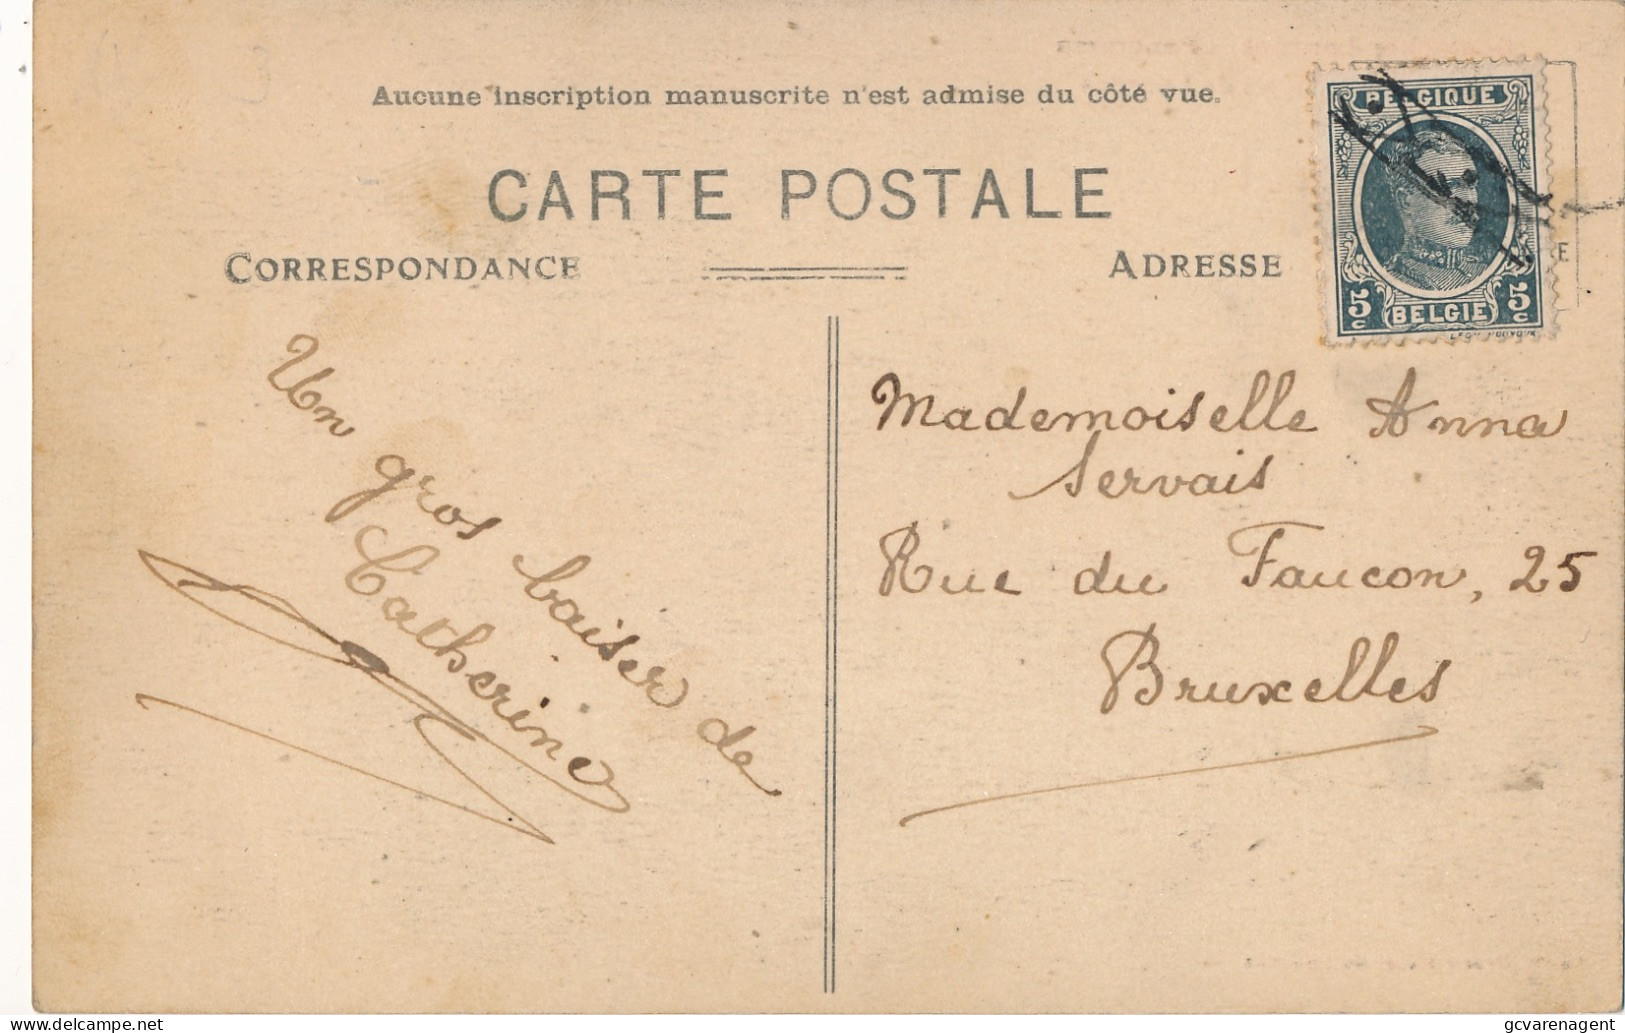 Aucune inscription manuscrite n'est admise du côté vue.
CARTE POSTALE
CORRESPONDANCE
ADRESSE
BELGIQUE
5c BELGIE 5c
Un gros baiser de
Catherine
Mademoiselle Anna
Servais
Rue du Faucon, 25
Bruxelles
delcampe.net
gcvarenagent